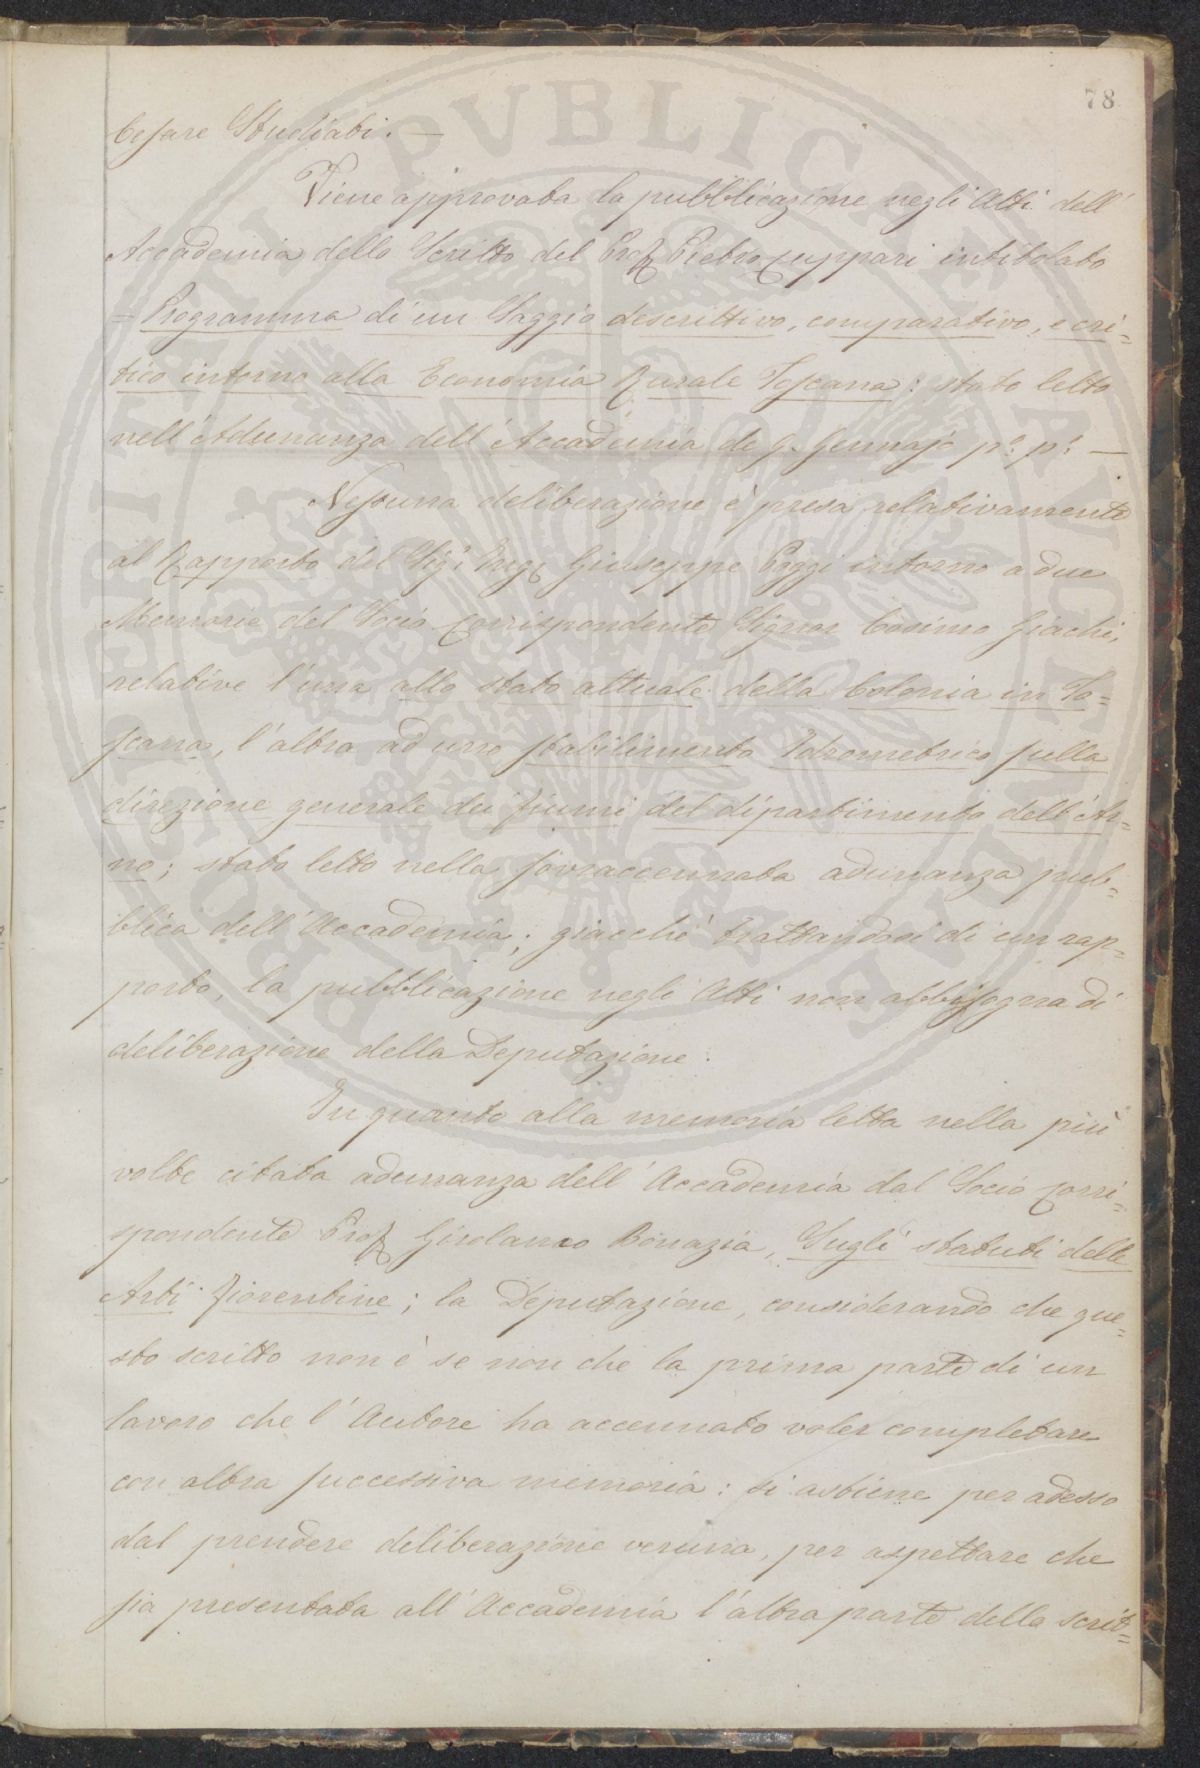 78
Cesare Studiati. —
Viene approvata la pubblicazione negli Atti dell'
Accademia dello Scritto del Prof. Pietro Cuppari intitolato
= Programma di un Saggio descrittivo, comparativo, e cri=
tico intorno alla Economia Rurale Toscana: stato letto
nell'Adunanza dell'Accademia de 9. Gennajo p.º p.º —
Nessuna deliberazione è presa relativamente
al Rapporto del Sig.r Ing. Giuseppe Poggi intorno a due
Memorie del Socio Corrispondente Signor Cosimo Giachi,
relative l'una allo stato attuale della Colonia in To=
scana, l'altra ad uno stabilimento Idrometrico sulla
direzione generale dei fiumi del dipartimento dell'Ar=
no; stato letto nella sovraccennata adunanza pub=
blica dell'Accademia; giacchè trattandosi di un rap=
porto, la pubblicazione negli Atti non abbisogna di
deliberazione della Deputazione.
In quanto alla memoria letta nella più
volte citata adunanza dell'Accademia dal Socio Corri=
spondente Prof. Girolamo Bonazia, Sugli statuti delle
Arti fiorentine; la Deputazione, considerando che que=
sto scritto non è se non che la prima parte di un
lavoro che l'Autore ha accennato voler completare
con altra successiva memoria: si astiene per adesso
dal prendere deliberazione veruna, per aspettare che
sia presentata all'Accademia l'altra parte della scrit=
PVBLICAE